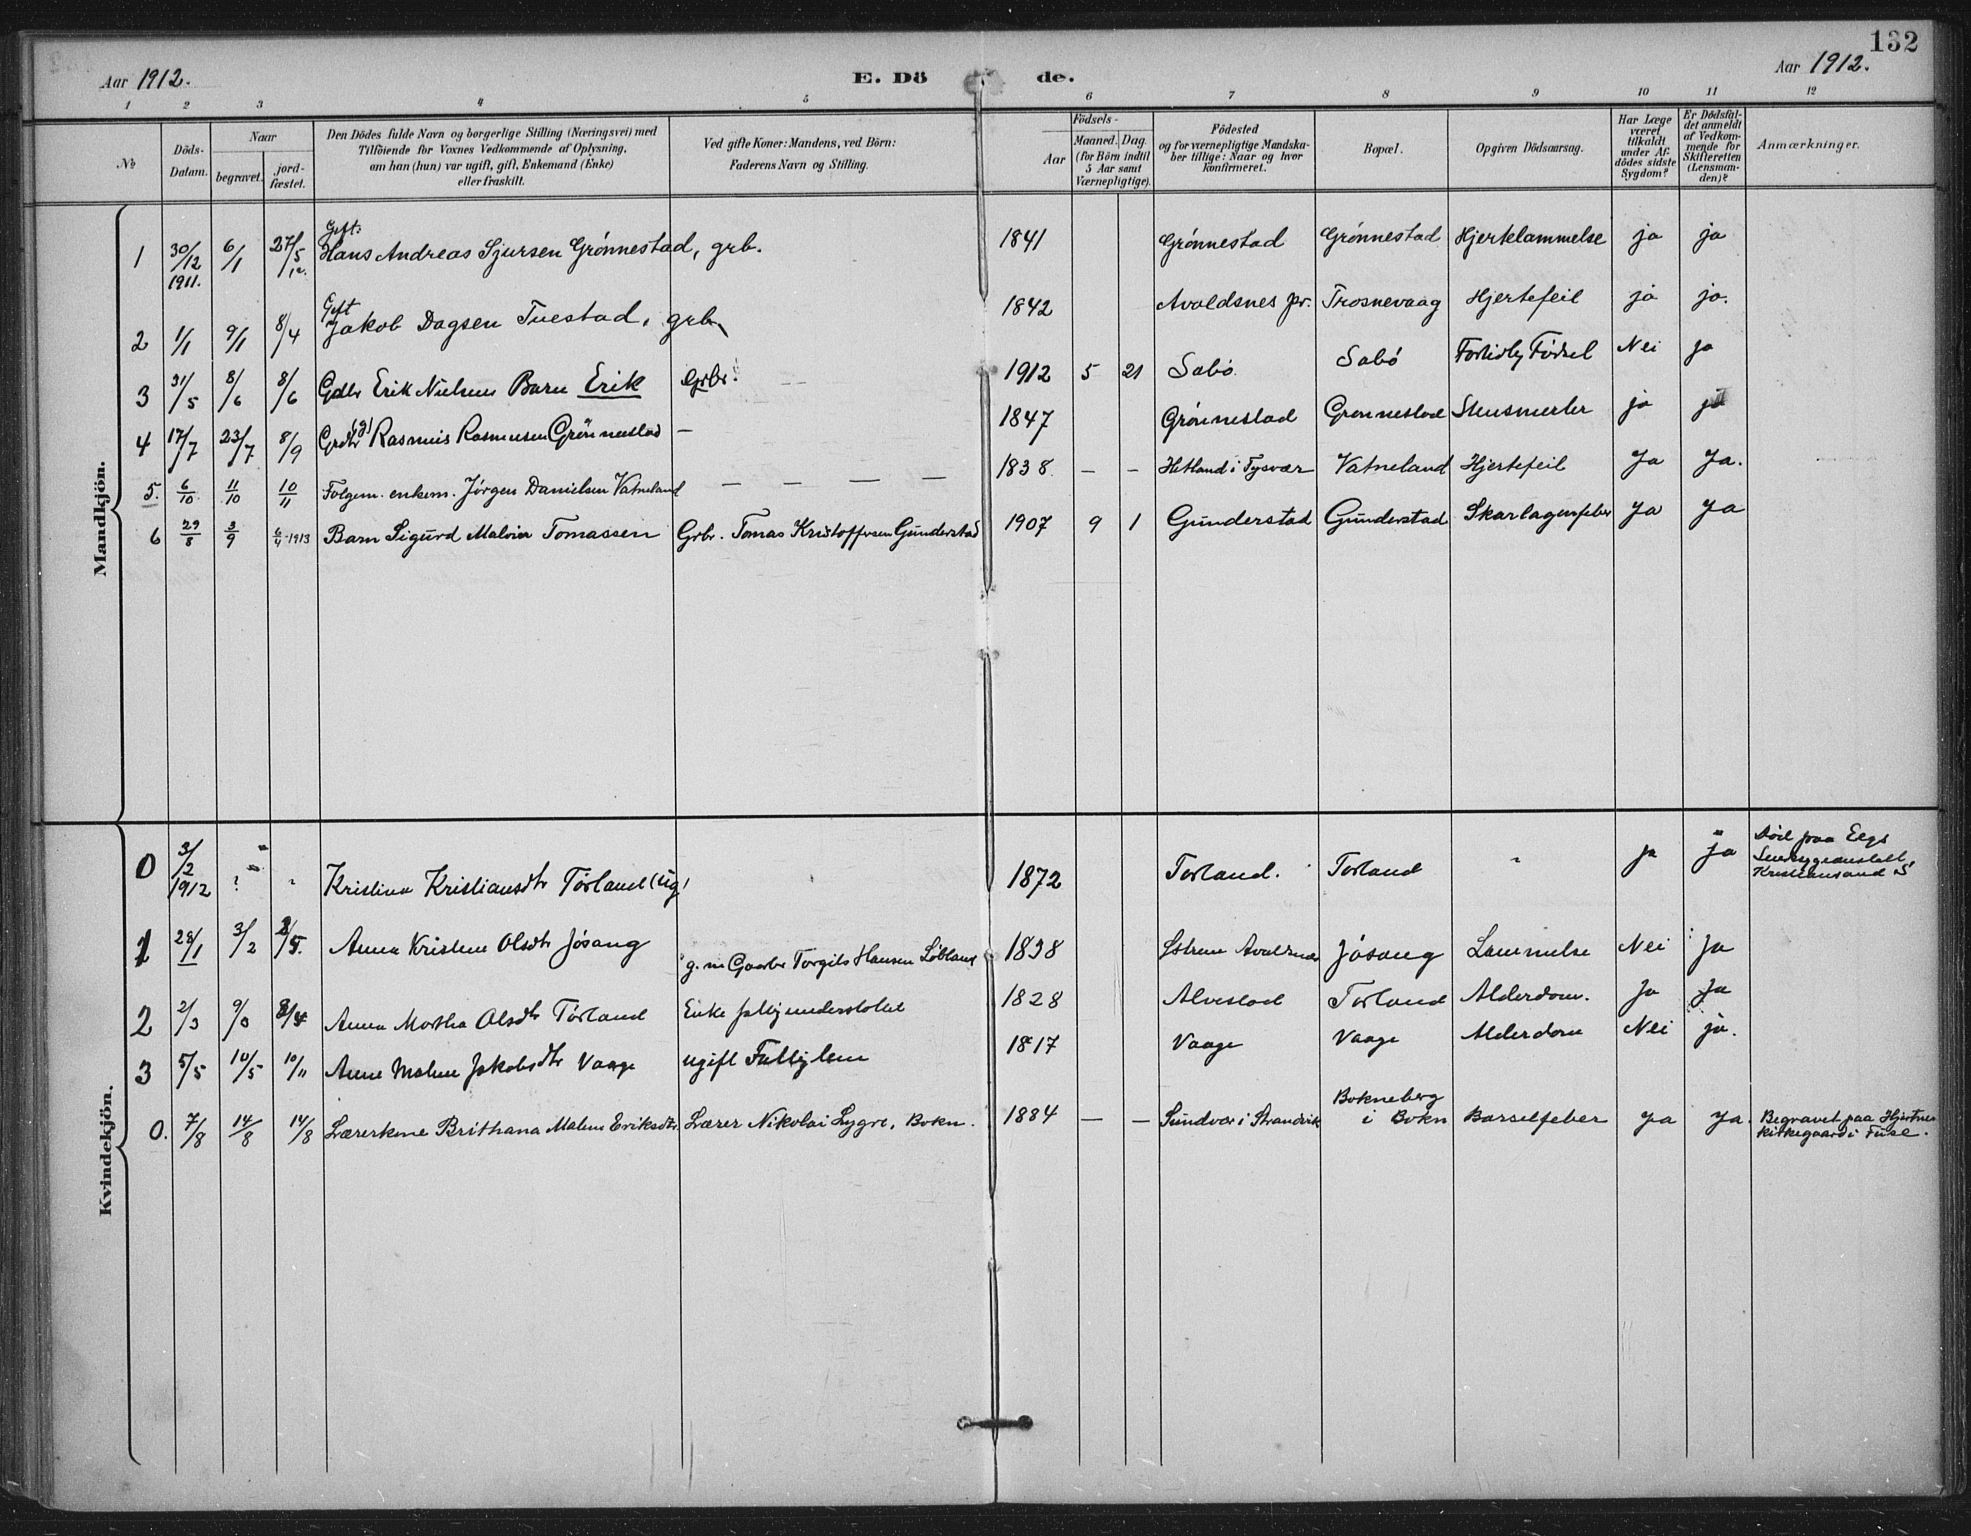 132
Aar 1912.
E. Dö de.
Aar 1912.
1 2 3 4 5 6 7 8 9 10 11 12
No
Döds-Datum.
Naar
begravet.
jord-fæstet.
Den Dödes fulde Navn og borgerlige Stilling (Næringsvei) med
Tilföiende for Voxnes Vedkommende af Oplysning,
om han (hun) var ugift, gift, Enkemand (Enke)
eller fraskilt.
Ved gifte Koner: Mandens, ved Börn:
Faderens Navn og Stilling.
Födsels-
Aar
Maaned. Dag.
(for Börn indtil
5 Aar samt
Værnepligtige).
Födested
og for værnepligtige Mandska-
ber tillige: Naar og hvor
konfirmeret.
Bopæl.
Opgiven Dödsaarsag.
Har Læge
været
tilkaldt
under Af-
dödes sidste
Sygdom?
Er Dödsfal-
det anmeldt
af Vedkom-
mende for
Skifteretten
(Lensman-
den)?
Anmærkninger.
Mandkjön.
1 30/12 1911. 6/1 27/5 12. Gift: Hans Andreas Sjursen Grönnestad, grb. 1841 Grönnestad Grönnestad Hjertelammelse ja ja
2 1/1 9/1 8/4 Gift Jakob Dagsen Tuestad, grb. 1842 Avaldsnes pr. Trosnevaag Hjertefeil ja ja.
3 31/5 8/6 8/6 Gdbr Erik Nielsens Barn Erik Grbr. 1912 5 21 Sabö Sabö Fortidlig Födsel Nei ja
4 17/7 23/7 8/9 Grdbr (g) Rasmus Rasmusen Grönnestad — 1847 Grönnestad Grönnestad Stensmerter ja ja
5. 6/10 11/10 10/11 Folgem. enkem. Jörgen Danielsen Vatneland — — — — 1838 — — Hetland i Tysvær Vatneland Hjertefeil Ja Ja.
6 29/8 3/9 6/4 1913 Barn Sigurd Malvin Tomassen Grbr. Tomas Kristoffersen Gunderstad 1907 9 1 Gunderstad Gunderstad Skarlagensfeber Ja Ja
Kvindekjön.
0 3/2 1912 " " Kristina Kristiansdtr Törland (ug) 1872 Torland. Torland " ja ja Död paa Eegs
Sindsygeanstalt,
Kristiansand S
1 28/1 3/2 2/5. Anna Kristine Olsdtr Jösang g. m Gaarbr Torgils Hansen Löbland 1838 Avaldsnes Jösang Lammelse Nei Ja
2 2/3 9/3 8/4 Anna Martha Olsdtr Törland Enke fattigunderstöttet 1828 Alvestad Torland Alderdom. Ja Ja
3 5/5 10/5 10/11 Anne Malene Jakobsdtr Vaage ugift Fattiglem 1817 Vaage Vaage Alderdom Nei ja.
0. 7/8 14/8 14/8 Lærerkone Brithana Malene Eriksdtr. Lærer Nikolai Lygre, Bokn. 1884 — — Sundvor i Strandvik Bokneberg
i Bokn Barselfeber Ja Ja. Begravet paa
kirkegaard i Fuse.